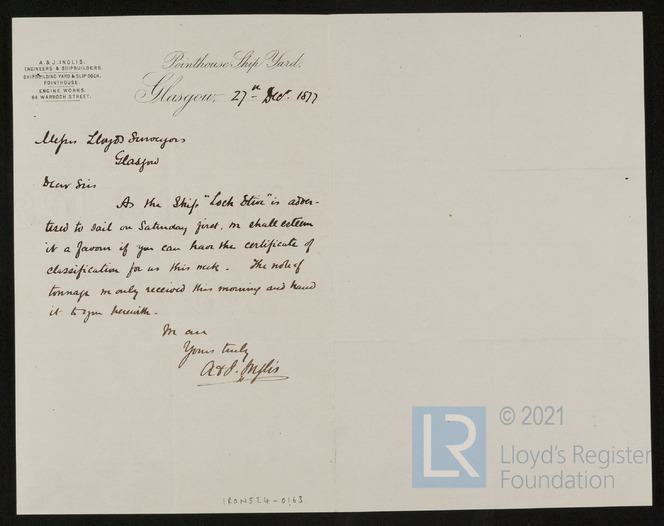 A. & J. INGLIS.
ENGINEERS & SHIPBUILDERS.
SHIPBUILDING YARD & SLIP DOCK,
POINTHOUSE.
ENGINE WORKS.
64 WARROCH STREET.
Pointhouse Ship Yard.
Glasgow, 27th Dec. 1877
Messrs Lloyds Surveyors
Glasgow
Dear Sirs
As the Ship "Loch Etive" is adver-
tised to sail on Saturday first, we shall esteem
it a favour if you can have the certificate of
classification for us this week. The note of
tonnage we only received this morning and hand
it to you herewith.
We are
Yours truly
A & J. Inglis
IRON524-0163
LR
© 2021
Lloyd's Register
Foundation